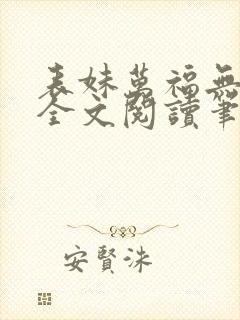 表妹萬福無
全文閱讀筆
安賢洙